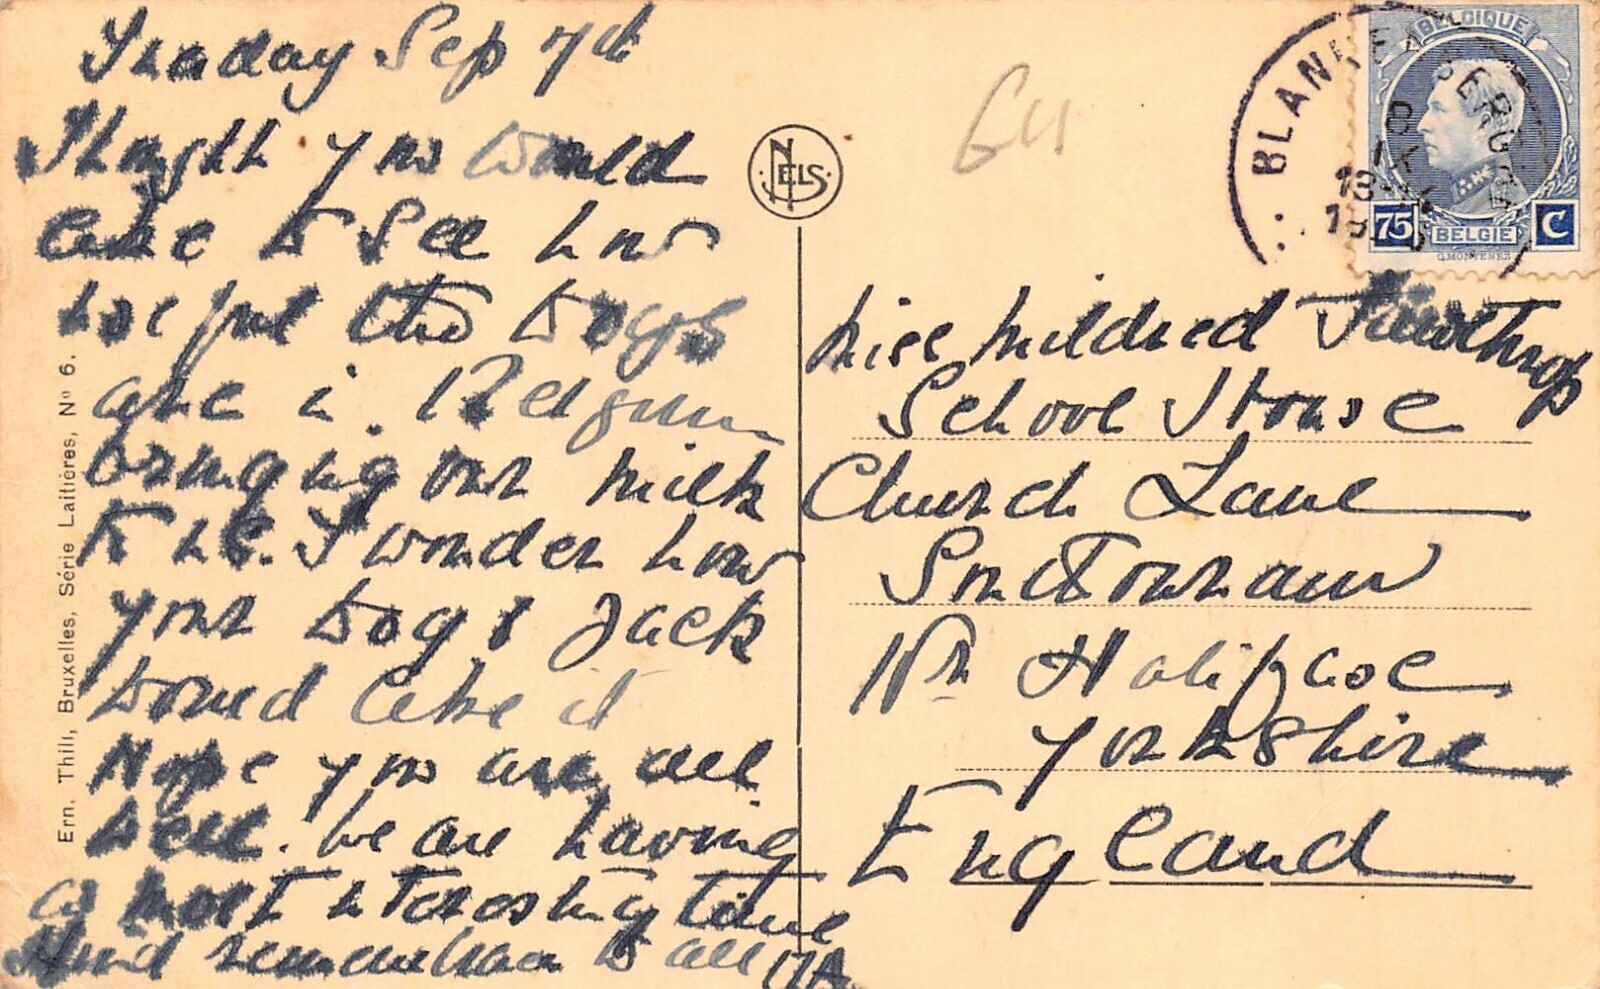 Sunday Sep 7th
Thought you would
like to see how
useful the dogs
are in Belgium
bringing our milk
to us. I wonder how
your dog & Jack
would like it
Hope you are all
well. We are having
a most interesting time
Kind remembrances to all
Ern. Thill, Bruxelles, Série Laitières, No 6.
NELS
64
BLANKENBERGHE
BELGIQUE
75 BELGIE C
G.MONTENEZ
Miss Mildred Fawthrop
School House
Church Lane
Southowram
Nr Halifax
Yorkshire
England